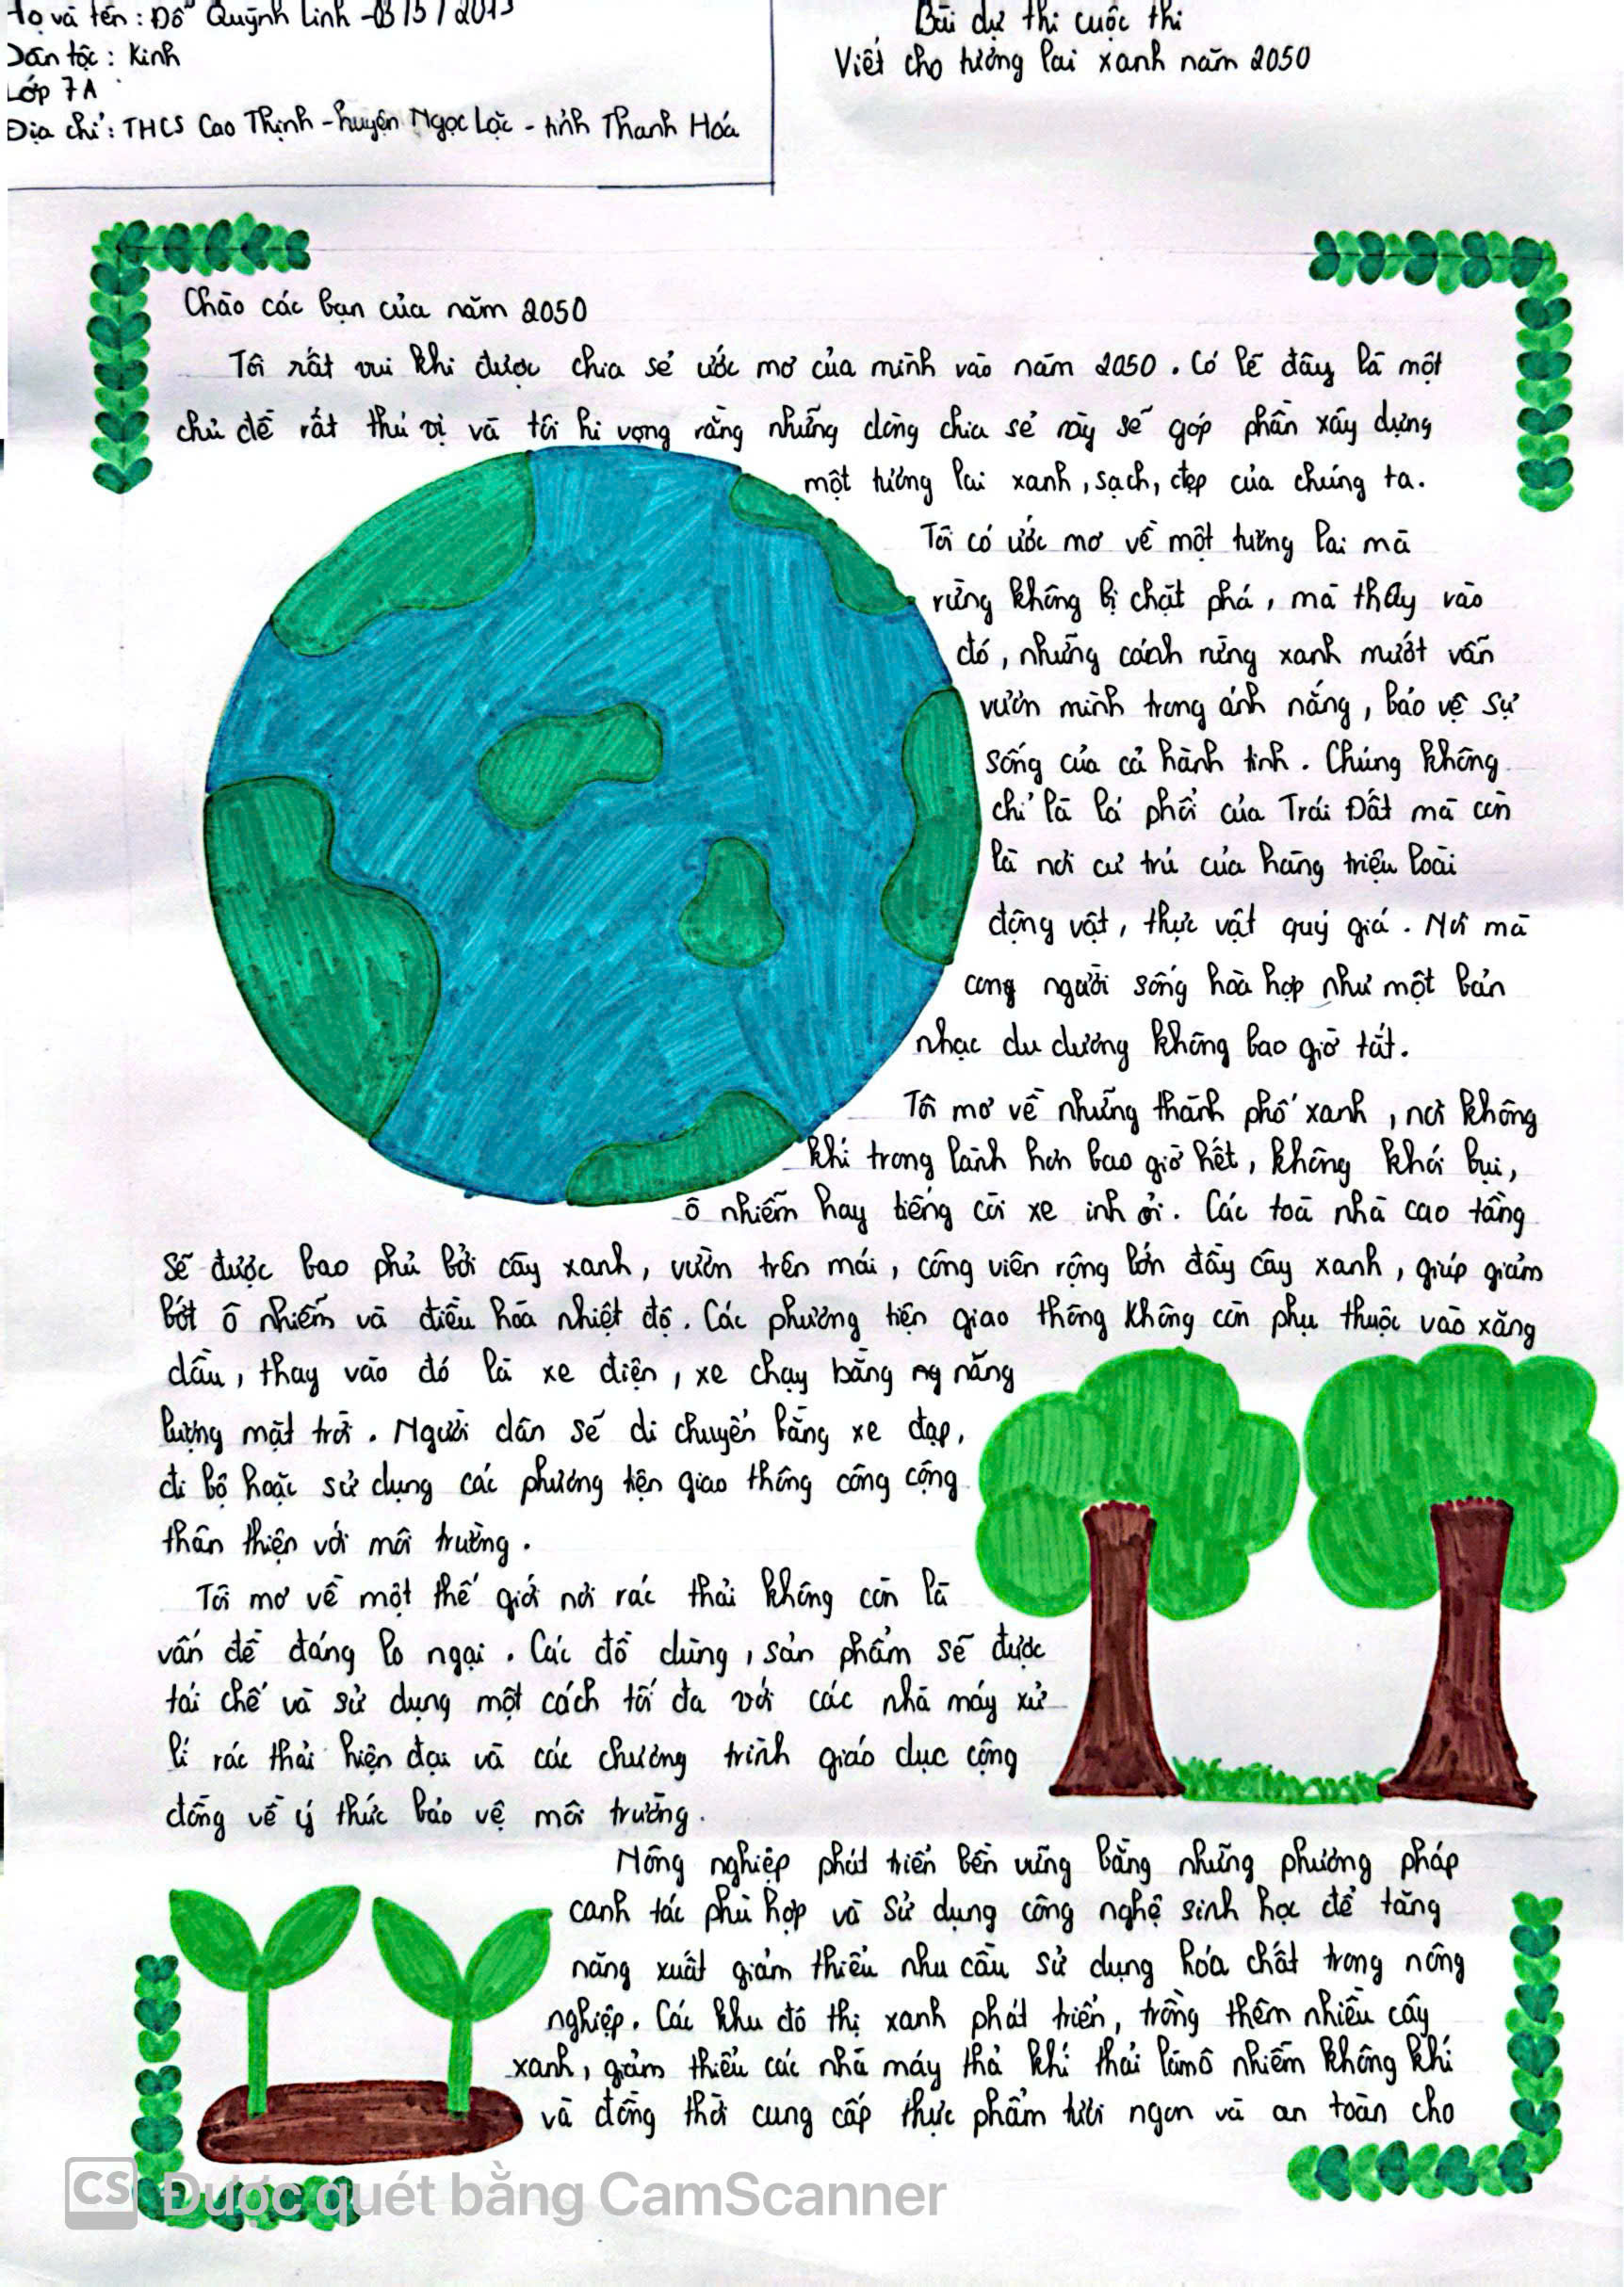 Họ và tên: Đỗ Quỳnh Linh - 03/5/2013
Dân tộc: Kinh
Lớp 7A
Địa chỉ: THCS Cao Thịnh - huyện Ngọc Lặc - tỉnh Thanh Hóa
Bài dự thi cuộc thi
Viết cho tương lai xanh năm 2050
Chào các bạn của năm 2050
Tôi rất vui khi được chia sẻ ước mơ của mình vào năm 2050. Có lẽ đây là một
chủ đề rất thú vị và tôi hi vọng rằng những dòng chia sẻ này sẽ góp phần xây dựng
một tương lai xanh, sạch, đẹp của chúng ta.
Tôi có ước mơ về một tương lai mà
rừng không bị chặt phá, mà thay vào
đó, những cánh rừng xanh mướt vẫn
vươn mình trong ánh nắng, bảo vệ sự
sống của cả hành tinh. Chúng không
chỉ là lá phổi của Trái Đất mà còn
là nơi cư trú của hàng triệu loài
động vật, thực vật quý giá. Nơi mà
cong người sống hoà hợp như một bản
nhạc du dương không bao giờ tắt.
Tôi mơ về những thành phố xanh, nơi không
khí trong lành hơn bao giờ hết, không khói bụi,
ô nhiễm hay tiếng còi xe inh ỏi. Các toà nhà cao tầng
sẽ được bao phủ bởi cây xanh, vườn trên mái, công viên rộng lớn đầy cây xanh, giúp giảm
bớt ô nhiễm và điều hòa nhiệt độ. Các phương tiện giao thông không còn phụ thuộc vào xăng
dầu, thay vào đó là xe điện, xe chạy bằng ng năng
lượng mặt trời. Người dân sẽ di chuyển bằng xe đạp,
đi bộ hoặc sử dụng các phương tiện giao thông công cộng
thân thiện với môi trường.
Tôi mơ về một thế giới nơi rác thải không còn là
vấn đề đáng lo ngại. Các đồ dùng, sản phẩm sẽ được
tái chế và sử dụng một cách tối đa với các nhà máy xử
lí rác thải hiện đại và các chương trình giáo dục cộng
đồng về ý thức bảo vệ môi trường.
Nông nghiệp phát triển bền vững bằng những phương pháp
canh tác phù hợp và sử dụng công nghệ sinh học để tăng
năng xuất giảm thiểu nhu cầu sử dụng hóa chất trong nông
nghiệp. Các khu đô thị xanh phát triển, trồng thêm nhiều cây
xanh, giảm thiểu các nhà máy thả khí thải làm ô nhiễm không khí
và đồng thời cung cấp thực phẩm tươi ngon và an toàn cho
CS Được quét bằng CamScanner